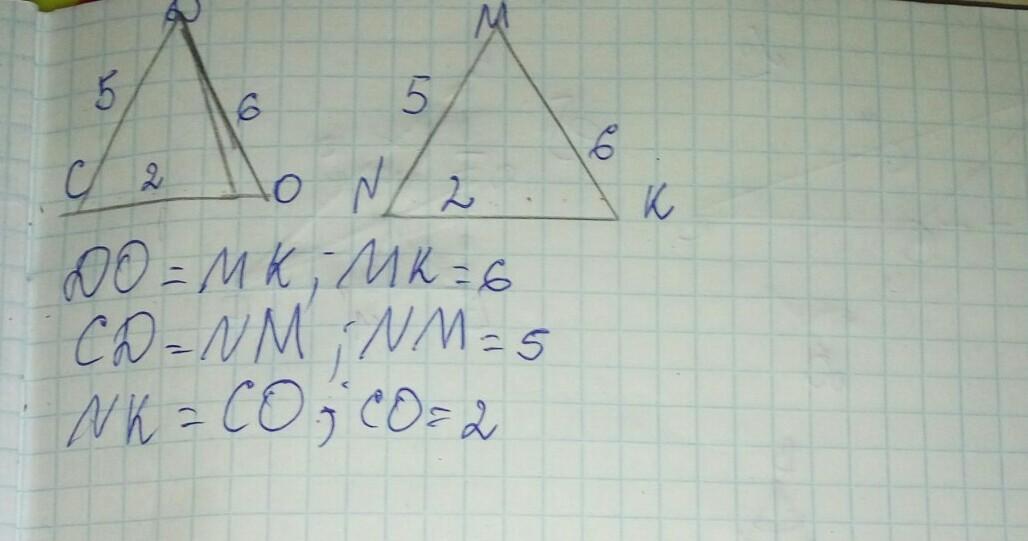 D M
5 6 5 6
C 2 O N 2 K
DO = MK; MK = 6
CD = NM; NM = 5
NK = CO; CO = 2